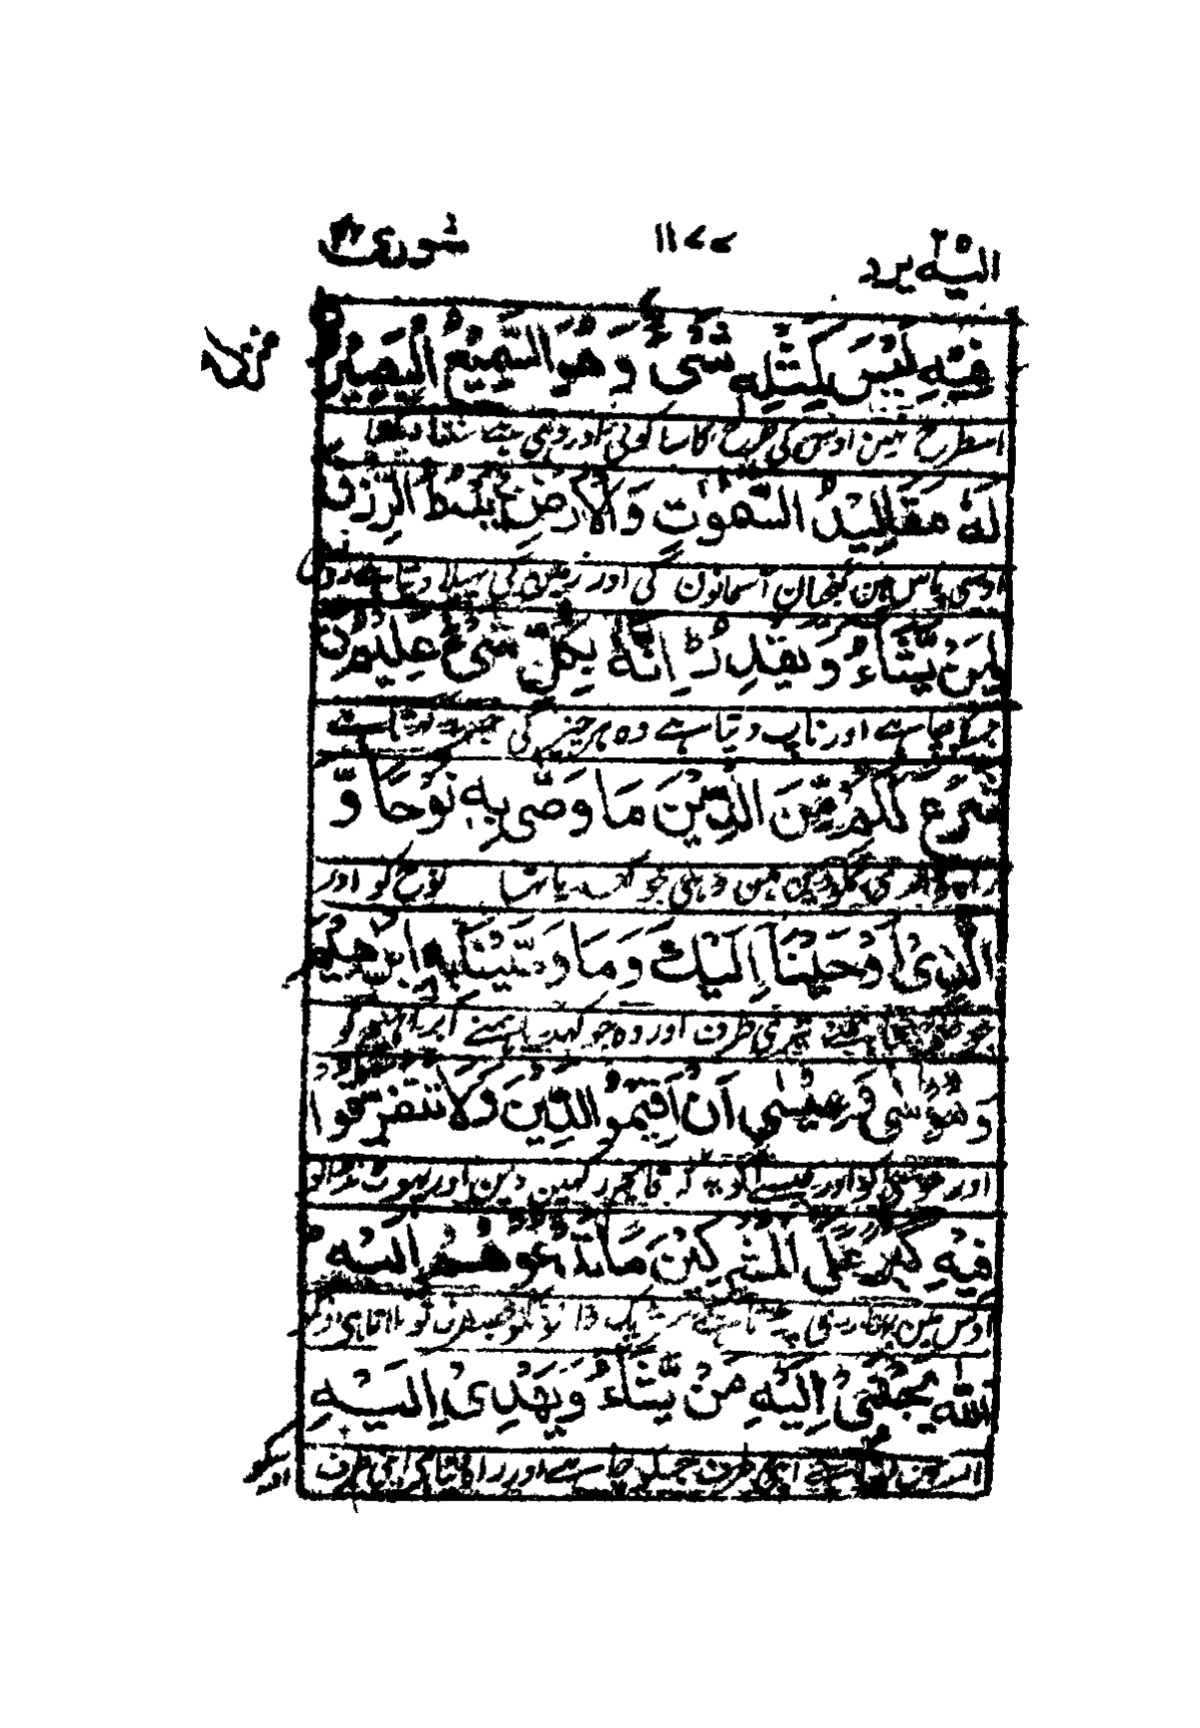 الیه یرد ۲۵ ۱۱۷۷ شوریٰ ۴۲
منزل
فِيْهِ لَيْسَ كَمِثْلِهٖ شَىْءٌ وَهُوَ السَّمِيْعُ الْبَصِيْرُ
اسطرح نہین اوسکی طرح کا سا کوئی اور وہی ہے سنتا دیکھتا
لَهٗ مَقَالِيْدُ السَّمٰوٰتِ وَالْاَرْضِ يَبْسُطُ الرِّزْقَ
اوسی پاس ہین کنجیان آسمانون کی اور زمین کی پہیلا دیتا ہے روزی
لِمَنْ يَّشَآءُ وَيَقْدِرُ اِنَّهٗ بِكُلِّ شَىْءٍ عَلِيْمٌ
چاہے اور ناپ دیتا ہے وہ ہر چیز کی
شَرَعَ لَكُمْ مِّنَ الدِّيْنِ مَا وَصّٰى بِهٖ نُوْحًا وَّ
دین مین وہی جو کہدیا تھا نوح کو اور
الَّذِىْٓ اَوْحَيْنَآ اِلَيْكَ وَمَا وَصَّيْنَا بِهٖٓ اِبْرٰهِيْمَ
تیری طرف اور وہ جو کہدیا ہمنے ابراہیم کو
وَمُوْسٰى وَعِيْسٰٓى اَنْ اَقِيْمُوا الدِّيْنَ وَلَا تَتَفَرَّقُوْا
اور موسیٰ کو اور عیسے کو یہ کہ قایم رکہین دین اور پہوٹ نہ ڈالو
فِيْهِ كَبُرَ عَلَى الْمُشْرِكِيْنَ مَا تَدْعُوْهُمْ اِلَيْهِ
اوس مین بہاری تو بلاتا ہی
اَللّٰهُ يَجْتَبِىْٓ اِلَيْهِ مَنْ يَّشَآءُ وَيَهْدِىْٓ اِلَيْهِ
اپنی طرف جسکو چاہے اور راہ دیتا ہی اپنی طرف
اوسکو